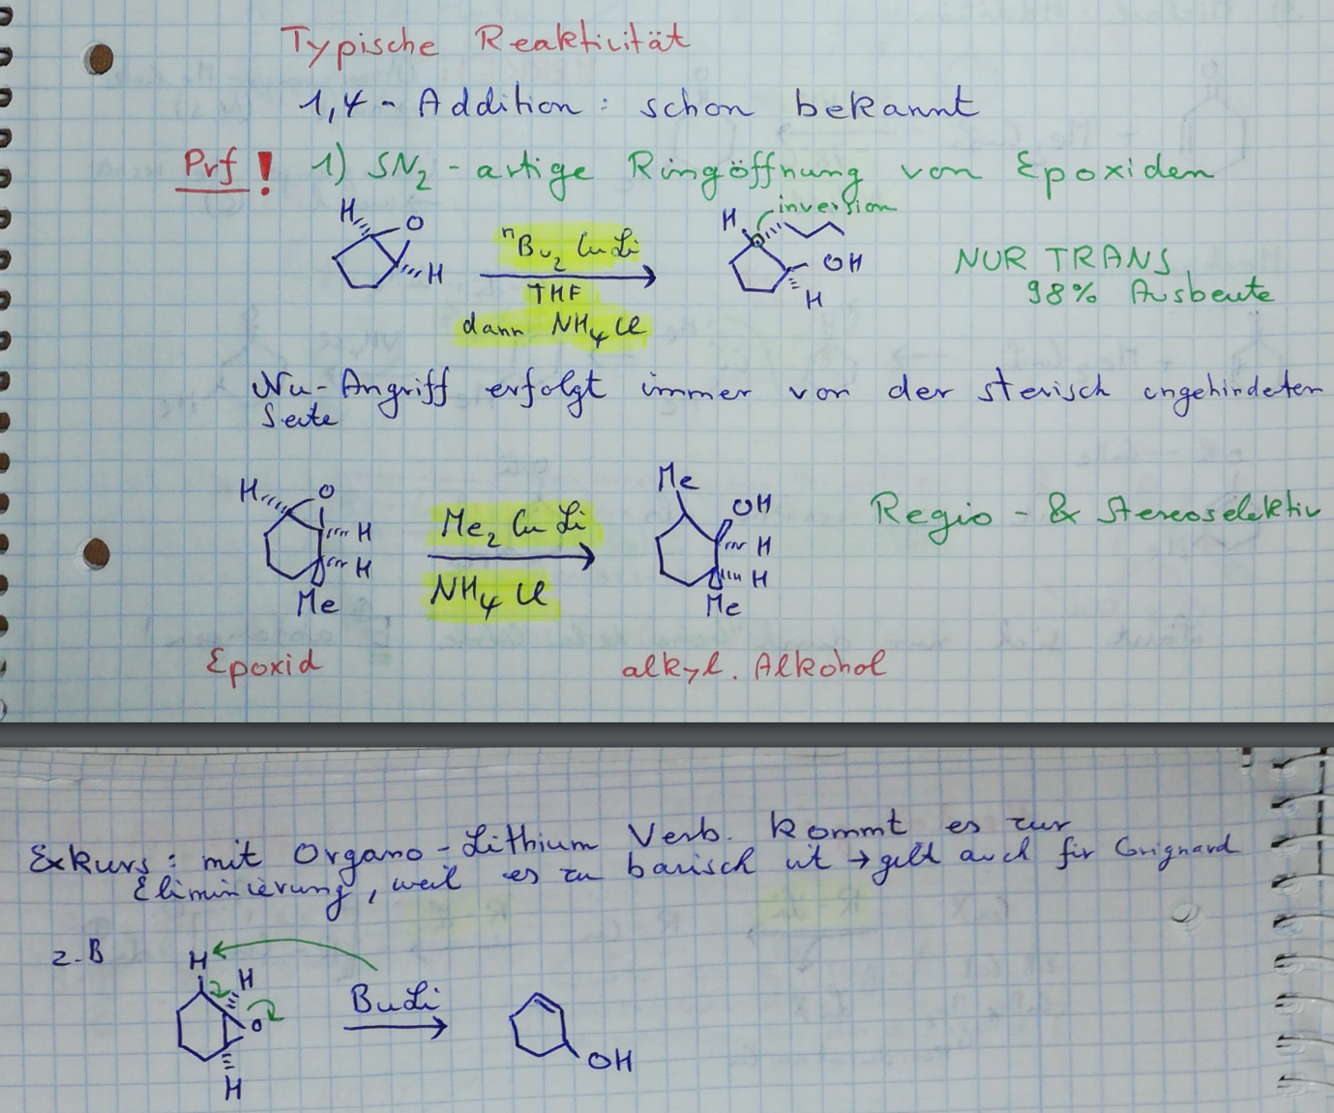 Typische Reaktivität
1,4 - Addition : schon bekannt
Prf ! 1) SN2 - artige Ringöffnung von Epoxiden
inversion
H O H
nBu2 CuLi
THF
dann NH4Cl
H OH H
NUR TRANS,
98% Ausbeute
Nu-Angriff erfolgt immer von der sterisch ungehinderten
Seite
H O H H Me
Me2 CuLi
NH4Cl
Me OH H H Me
Regio - & Stereoselektiv
Epoxid
alkyl. Alkohol
Exkurs : mit Organo - Lithium Verb. kommt es zur
Eliminierung, weil es zu basisch ist → gilt auch für Grignard
z.B
H H O H
BuLi
OH